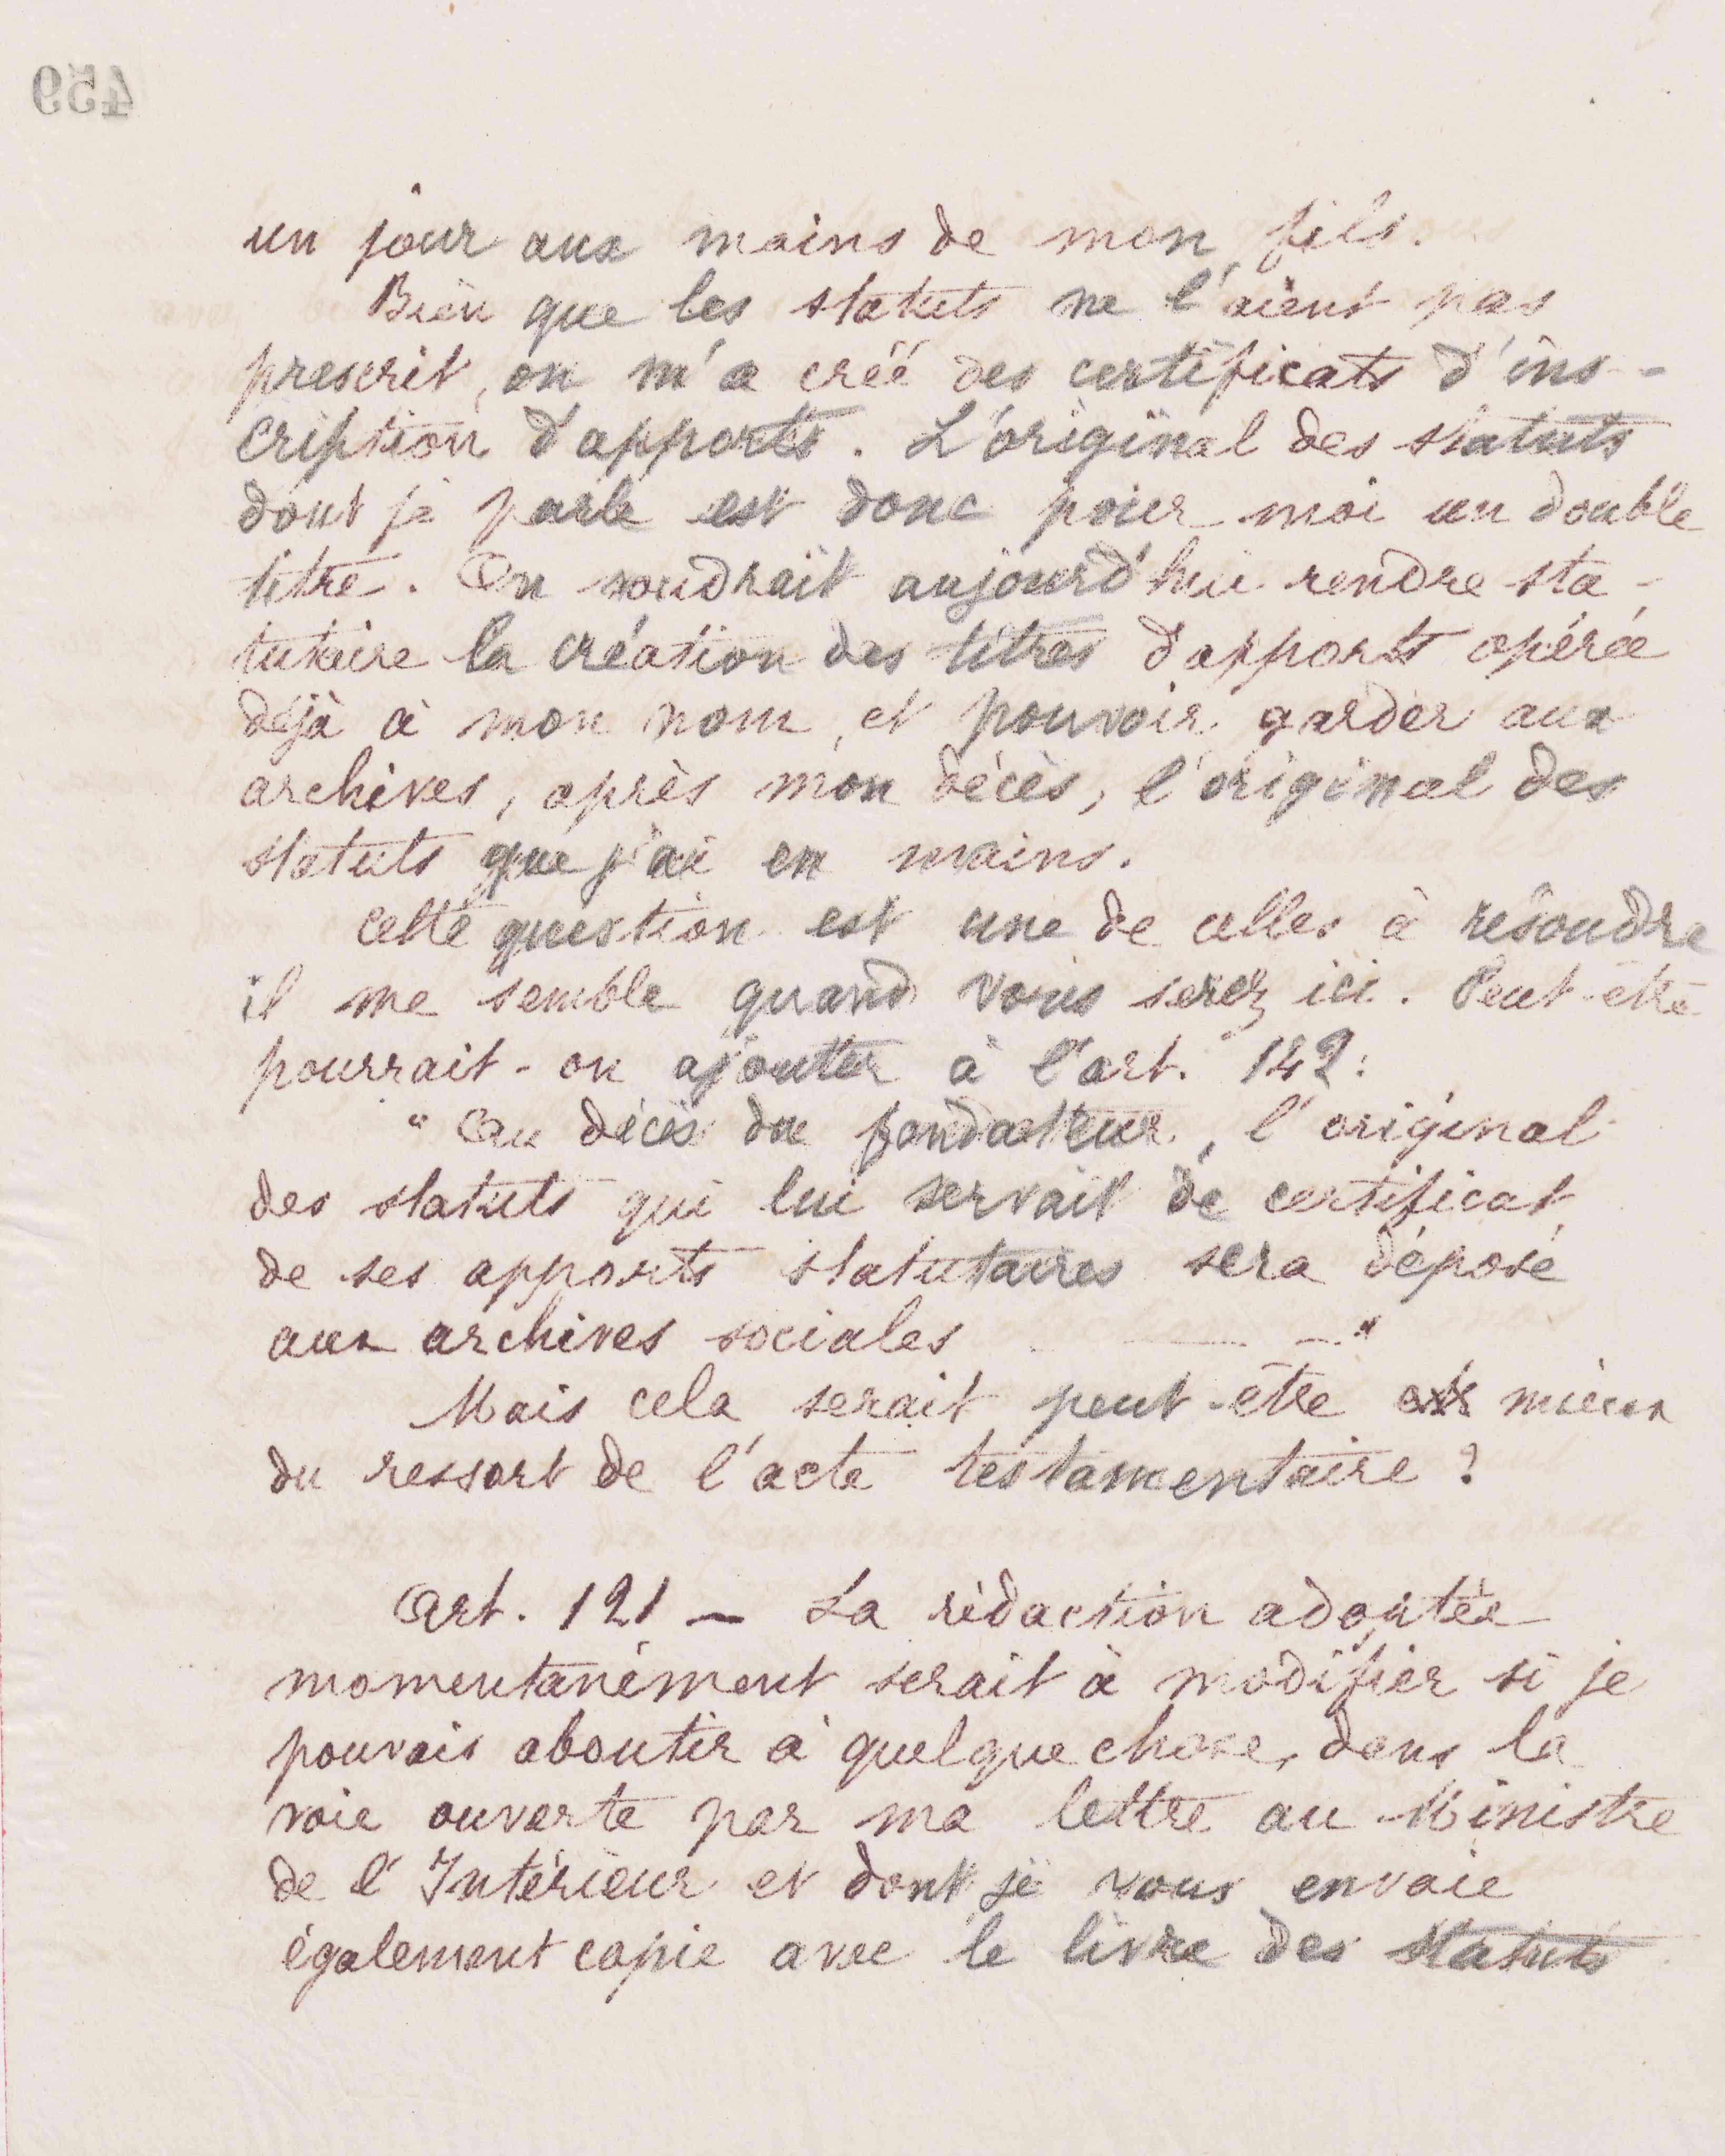 459
un jour aux mains de mon fils.
Bien que les statuts ne l'aient pas
prescrit, on m'a créé des certificats d'ins-
cription d'apports. L'original des statuts
dont je parle est donc pour moi un double
titre. On voudrait aujourd'hui rendre sta-
tutaire la création des titres d'apports opérée
déjà à mon nom, et pouvoir garder aux
archives, après mon décès, l'original des
statuts que j'ai en mains.
Cette question est une de celles à résoudre
il me semble quand vous serez ici. Peut-être
pourrait-on ajouter à l'art. 142:
"Au décès du fondateur, l'original
des statuts qui lui servait de certificat
de ses apports statutaires sera déposé
aux archives sociales — — "
Mais cela serait peut-être mieux
du ressort de l'acte testamentaire?
Art. 121 — La rédaction adoptée
momentanément serait à modifier si je
pouvais aboutir à quelque chose, dans la
voie ouverte par ma lettre au Ministre
de l'Intérieur et dont je vous envoie
également copie avec le livre des statuts